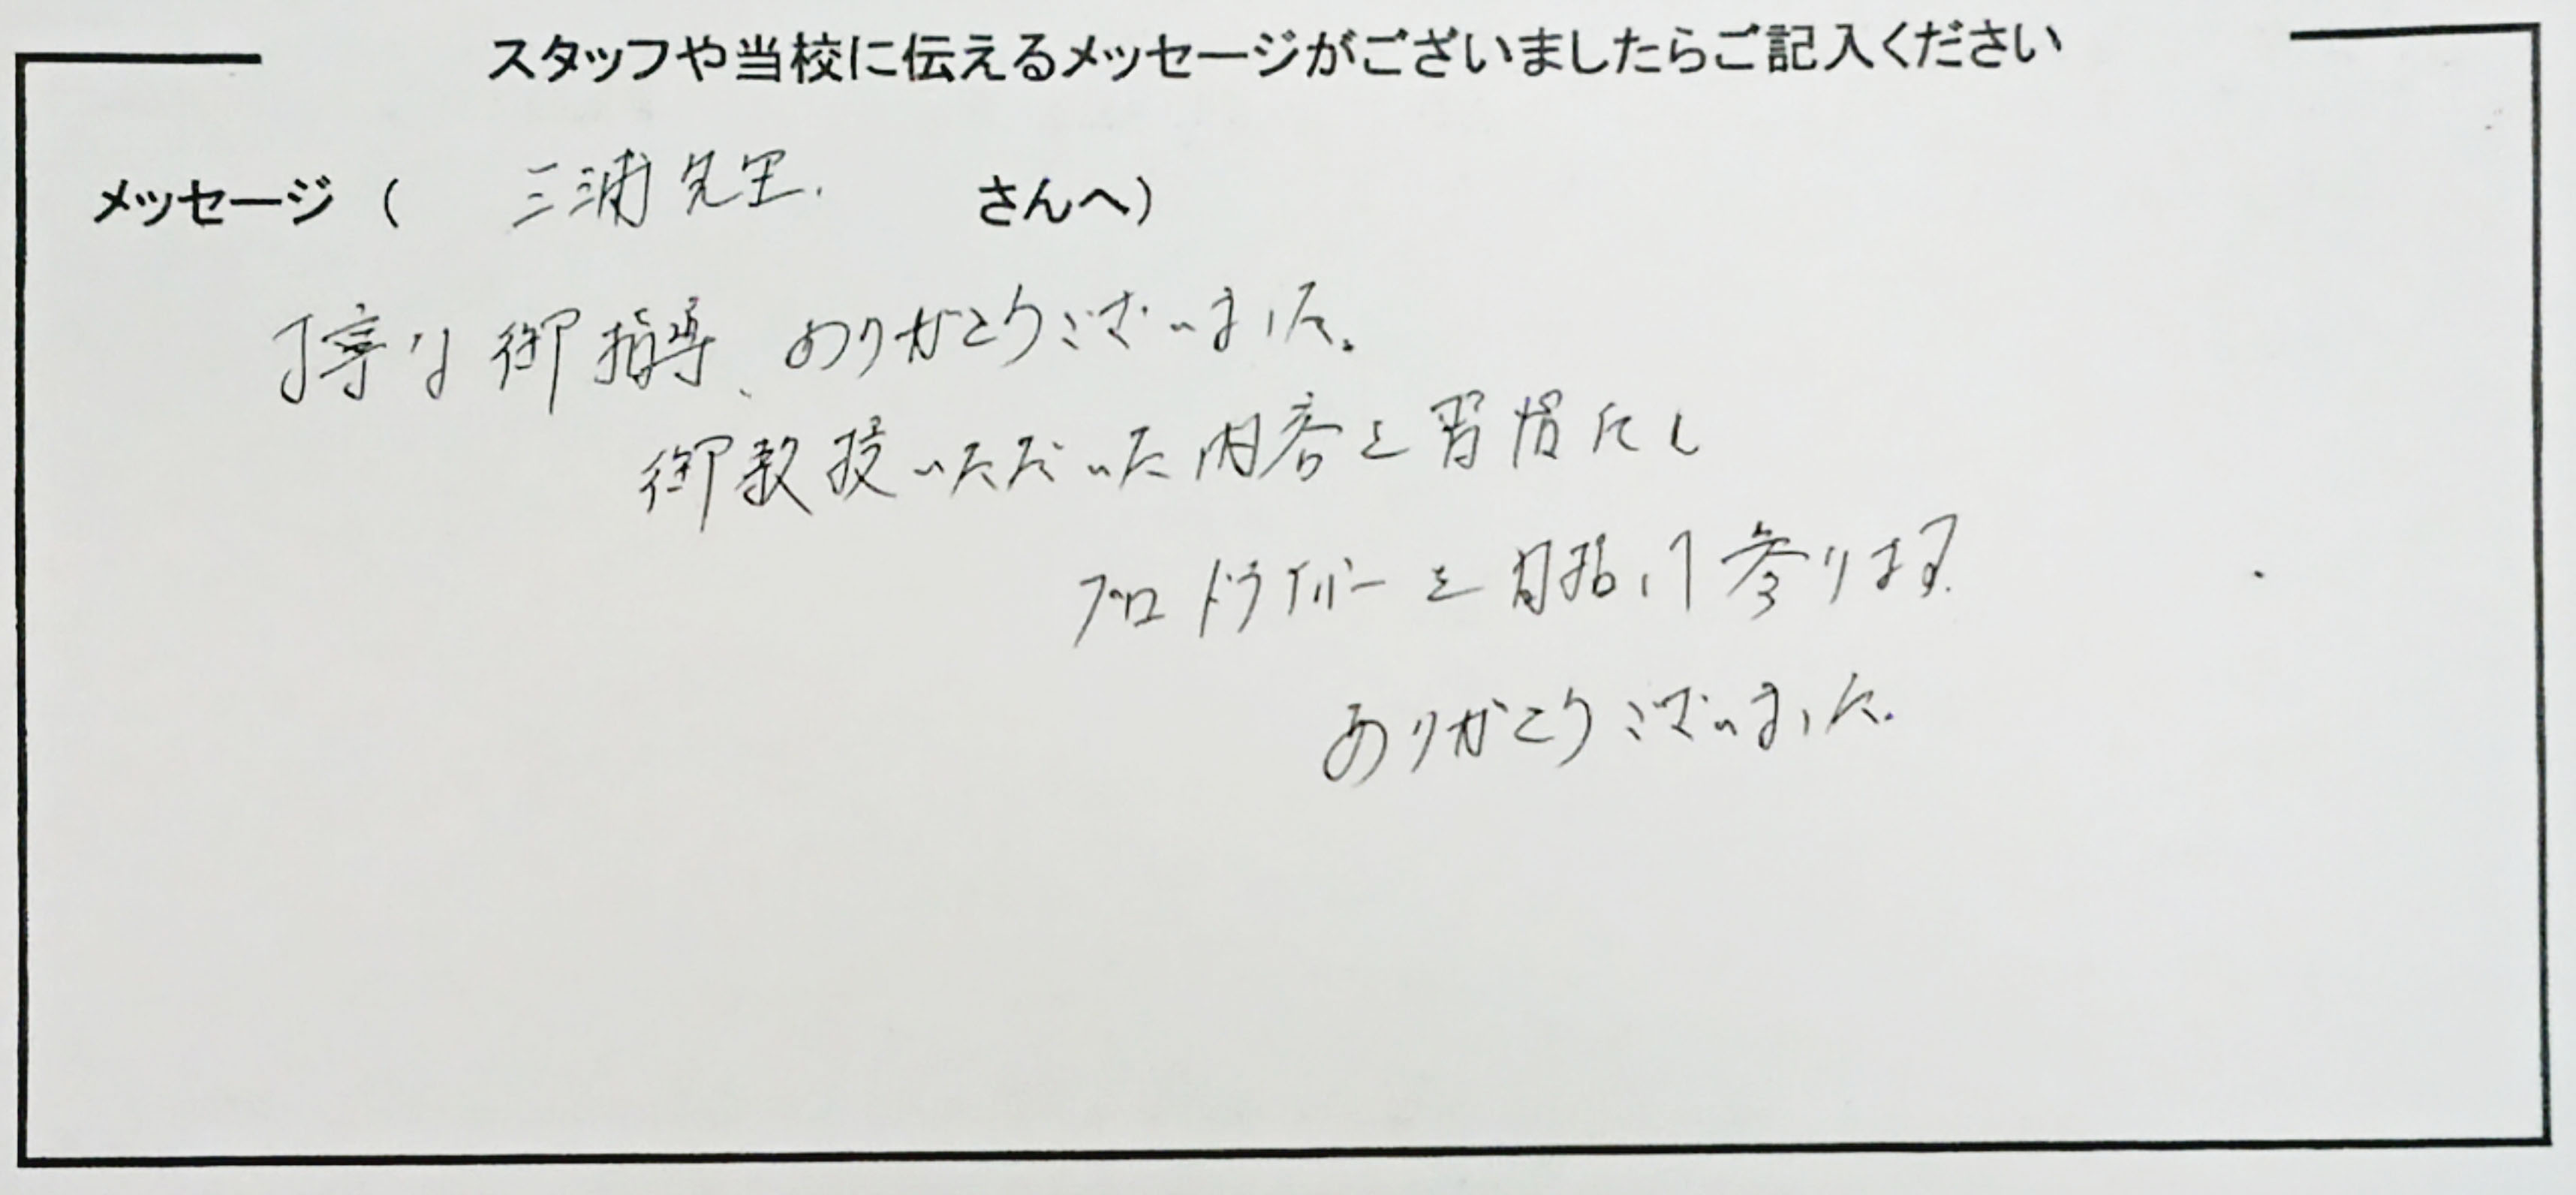 スタッフや当校に伝えるメッセージがございましたらご記入ください
メッセージ ( 三浦先生. さんへ)
丁寧な御指導、ありがとうございました。
御教授いただいた内容を習慣化し
プロドライバーを目指して参ります.
ありがとうございました.